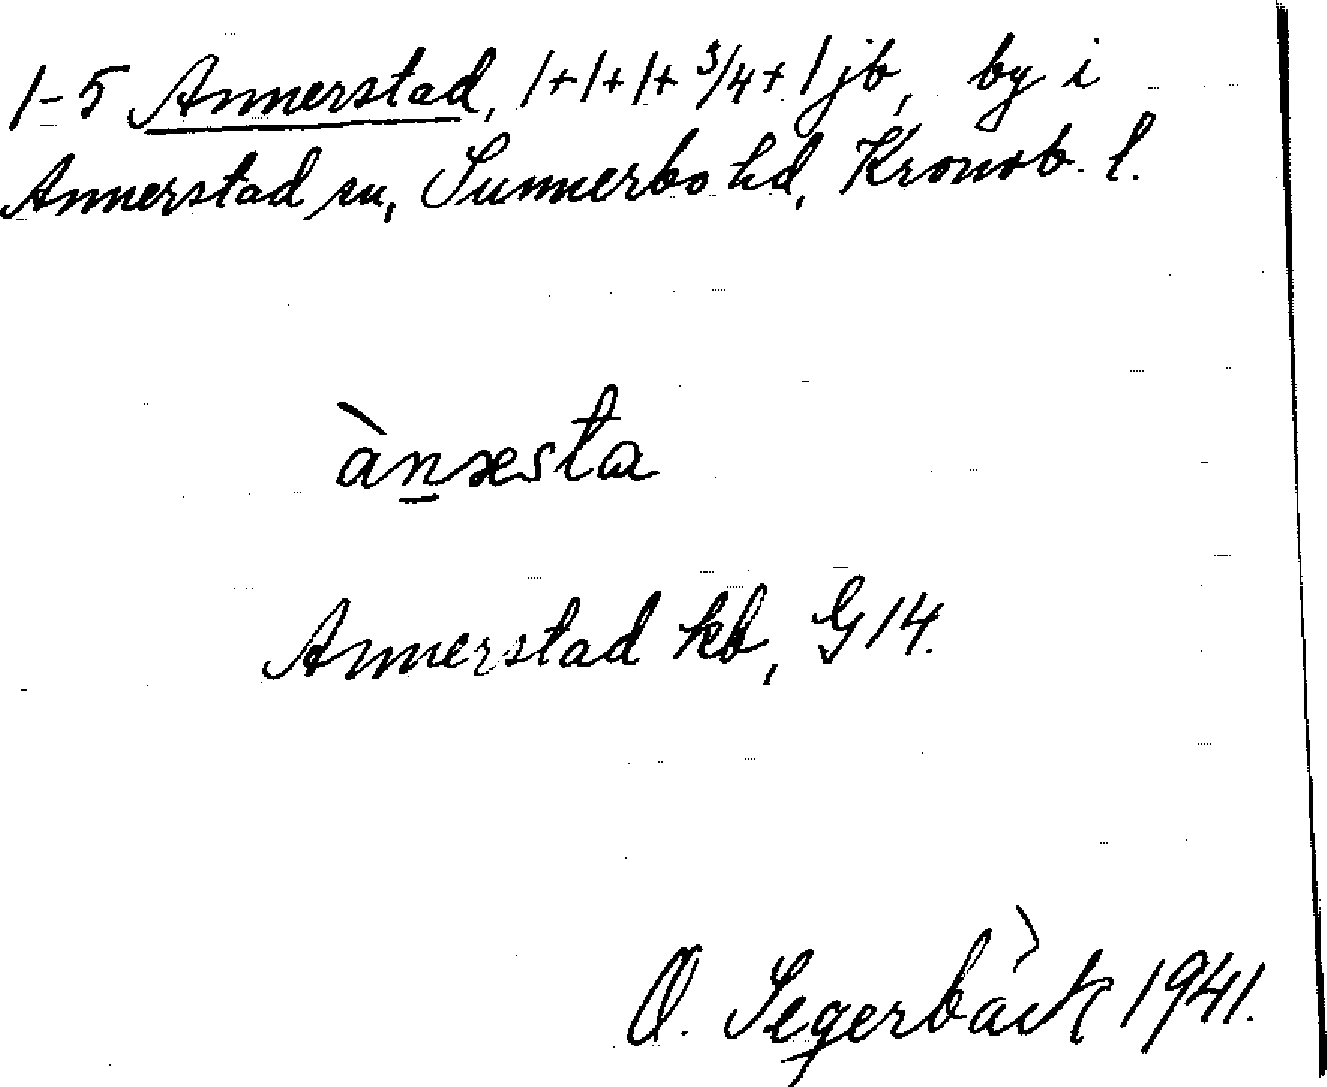 1-5 Annerstad, 1+1+1+3/4+1 jb, by i
Annerstad sn, Sunnerbo hd, Kronob. l.
àn̲æsta
Annerstad kb, G 14.
O. Segerbäck 1941.